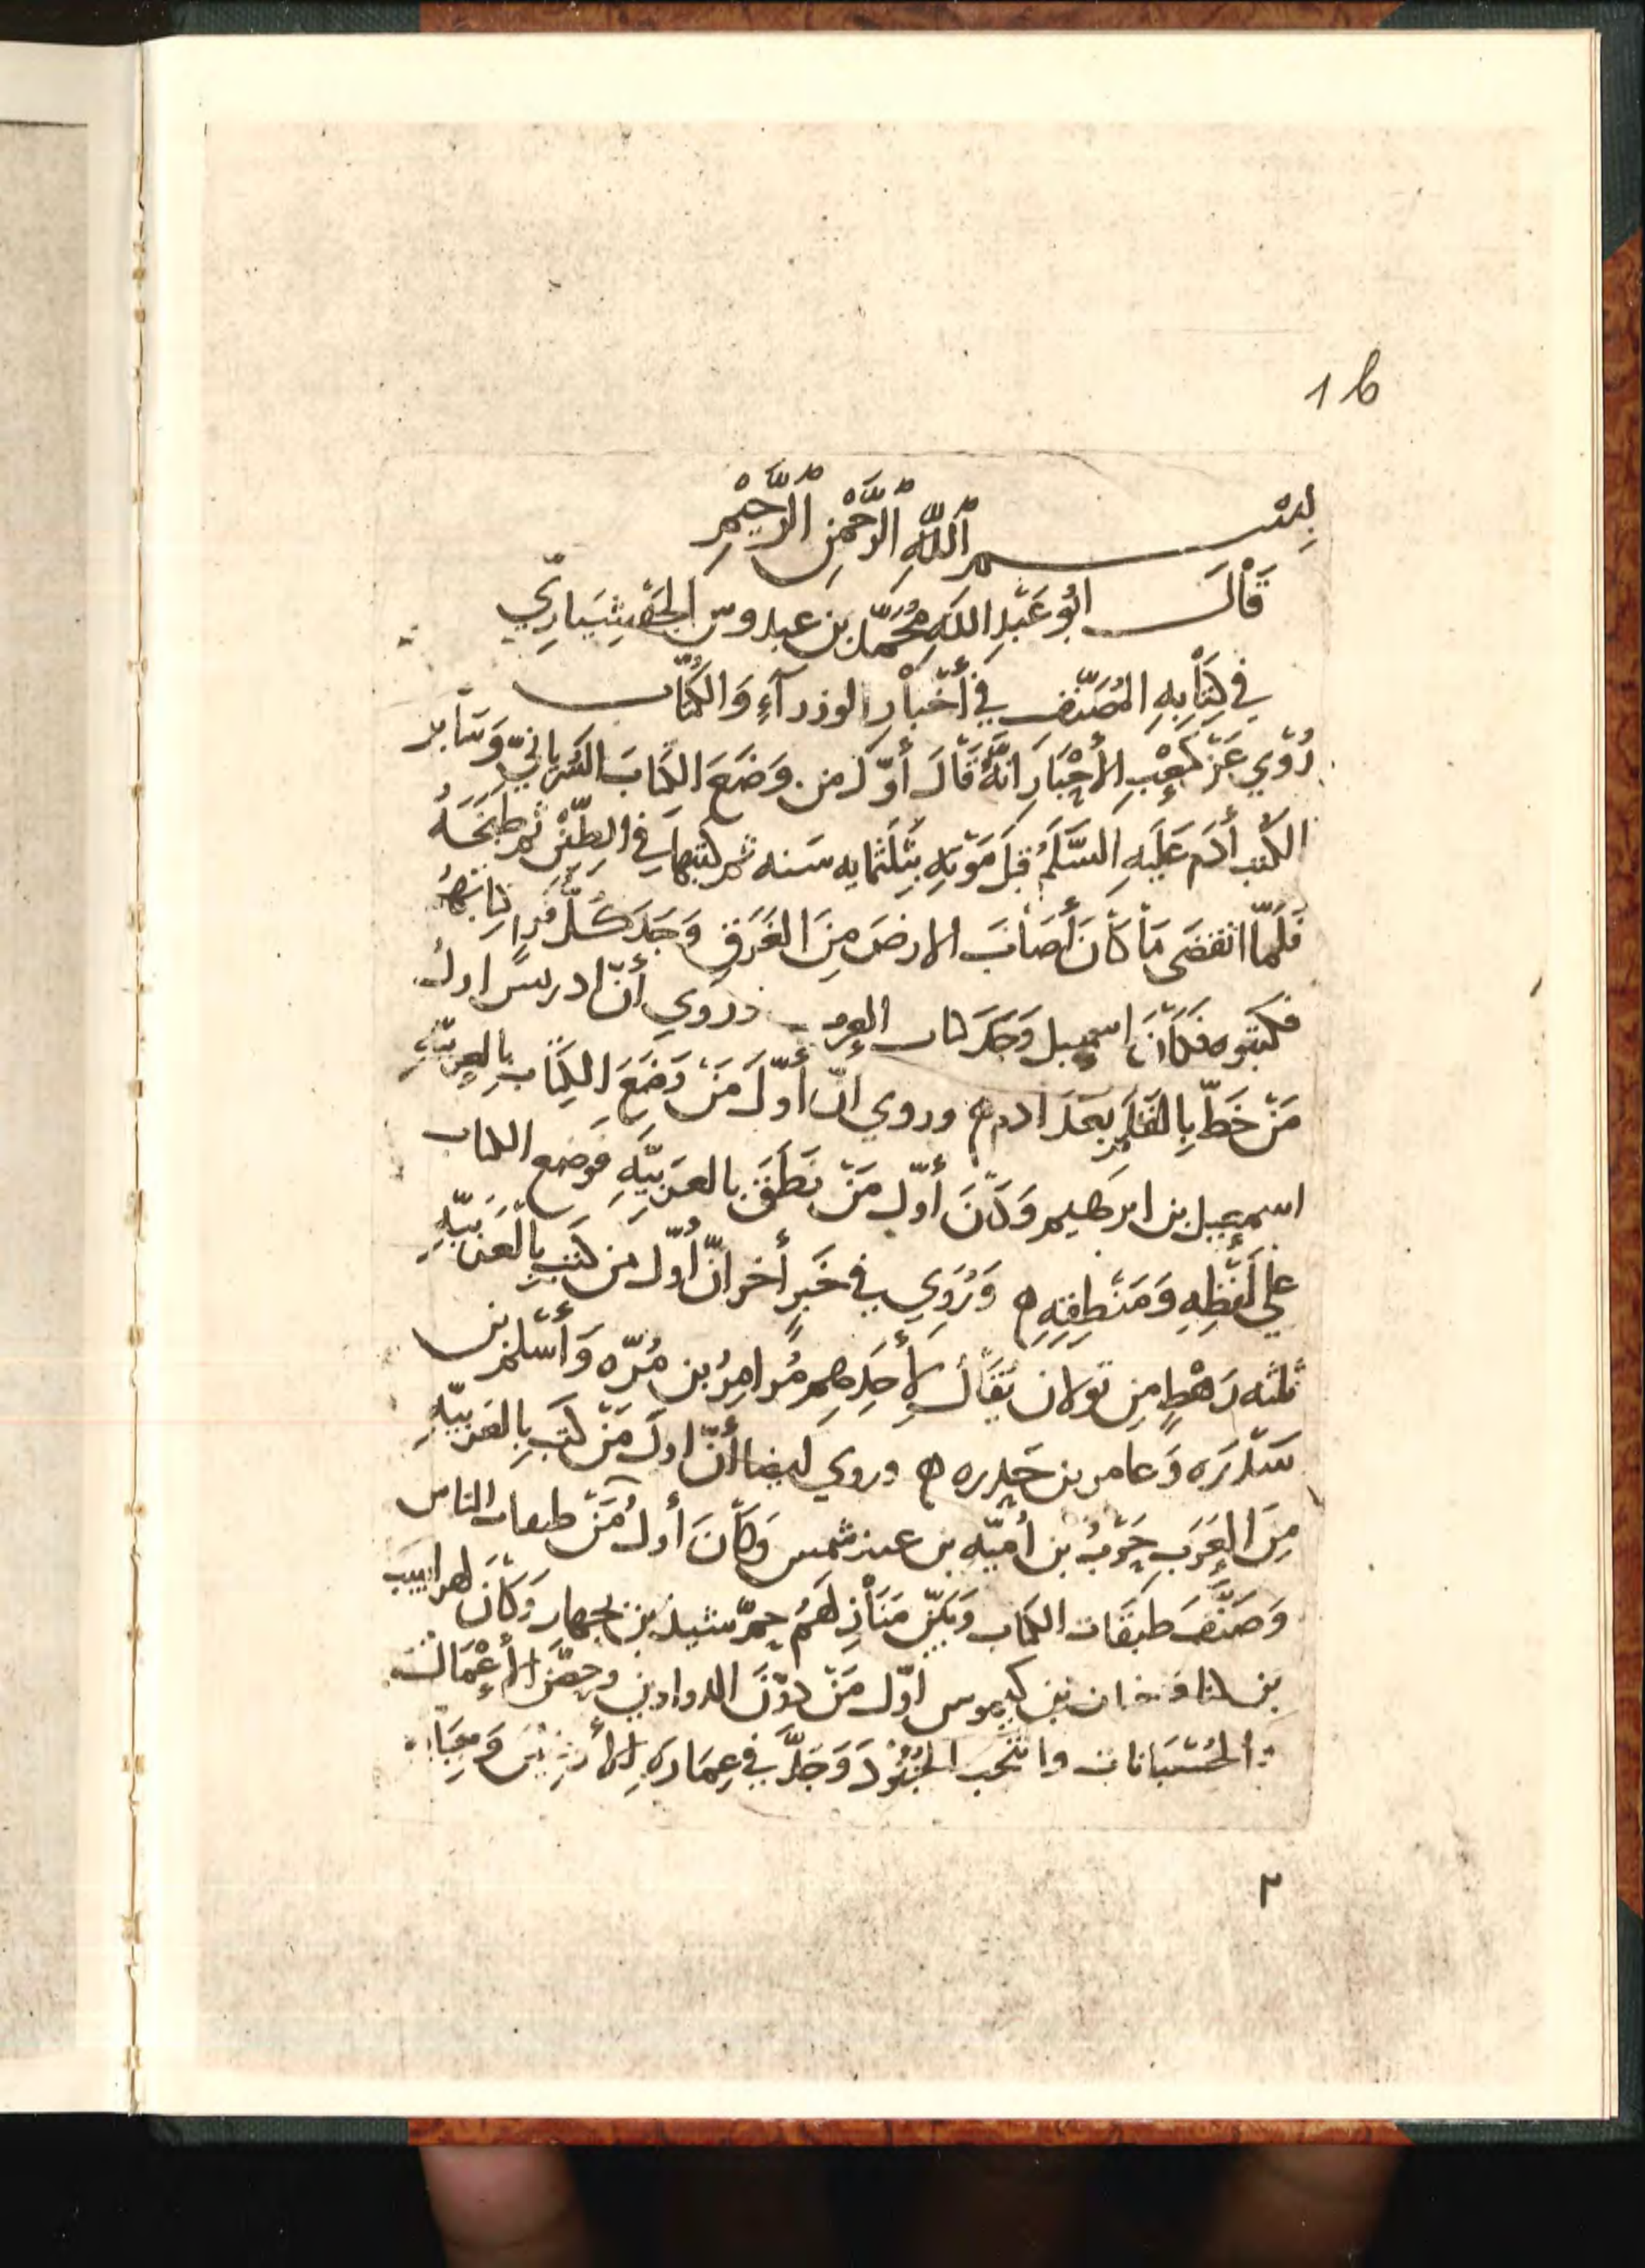 1b
بِسْمِ اَللّٰهِ الرَّحْمٰنِ الرَّحِيْمِ
قَاْلَ ابُو عَبْدِ اللّهِ مُحَمَّد بن عبدوس الجَهْشِيَارِيّ
في كِتَاْبِهِ المُصَنَّفِ فِي أخْبَاْرِ الوزرآءِ وَالكُتَّاب
رُوِي عَنْ كَعْبِ الأحْبَارِ انَّهُ قَالَ أوّل من وَضَعَ الكتابَ السُرْيانيّ وَسَاْير
الكتب أدَم عَلَيهِ السَّلَمُ قبل مَوْتِهِ بِثَلثمايه سَنه ثم كتبها في الطِّيْن ثم طبَخَهُ
فَلَمّا انقضى مَا كَاْنَ أصَاْبَ الارضَ مِنَ الغَرَقِ وَجَدَ كُلُّ قَوم كتابَهُم
فكتبوه فكَاْنَ اسمعيل وَجَدَ كتاب العرب وروِي أنّ ادريس اول
مَنْ خَطّ بِالقَلَمِ بَعدَ ادم ه وروي انّ أوّلَ مَنْ وَضَعَ الكِتَاْب بِالعربيّهِ
اسمعيل بن ابرهيم وَكَاْنَ أوّل مَنْ نَطَقَ بالعَرَبيَّهِ فوَضع الكتاب
علي لَفْظِهِ وَمَنْطِقِهِ ه وَرُوِي في خَبرٍ أخر انّ أوّل من كَتبَ بِالْعَرَبيّهِ
ثلثه رَهْطٍ مِن بَولان يُقَاْلُ لِأحَدِهِم مُرامِرُ بن مُرّه وَأسْلم بن
سدْرَه وَعامر بن جَدره ه وروي ايضا أنّ اولَ مَنْ كتَب بِالعَرَبيّهِ
مِنَ العَرَبِ حَرْبُ بن أميّهِ بن عبد شمس وَكاْنَ أولُ مَنْ طبقات الناس
وَصَنَّفَ طبَقَات الكتاب وَبيّن مَنَاْزِلَهُم جمّ شيذ بن
بن اوّل مَنْ دوّنَ الدواوين وحصَّنَ الأعْمَال
والحُسْبَانات وانتخب الجُنُوْدَ وَجَدَّ في عِمَارَهِ الأرَضِيْنَ وَجِبَا
٢